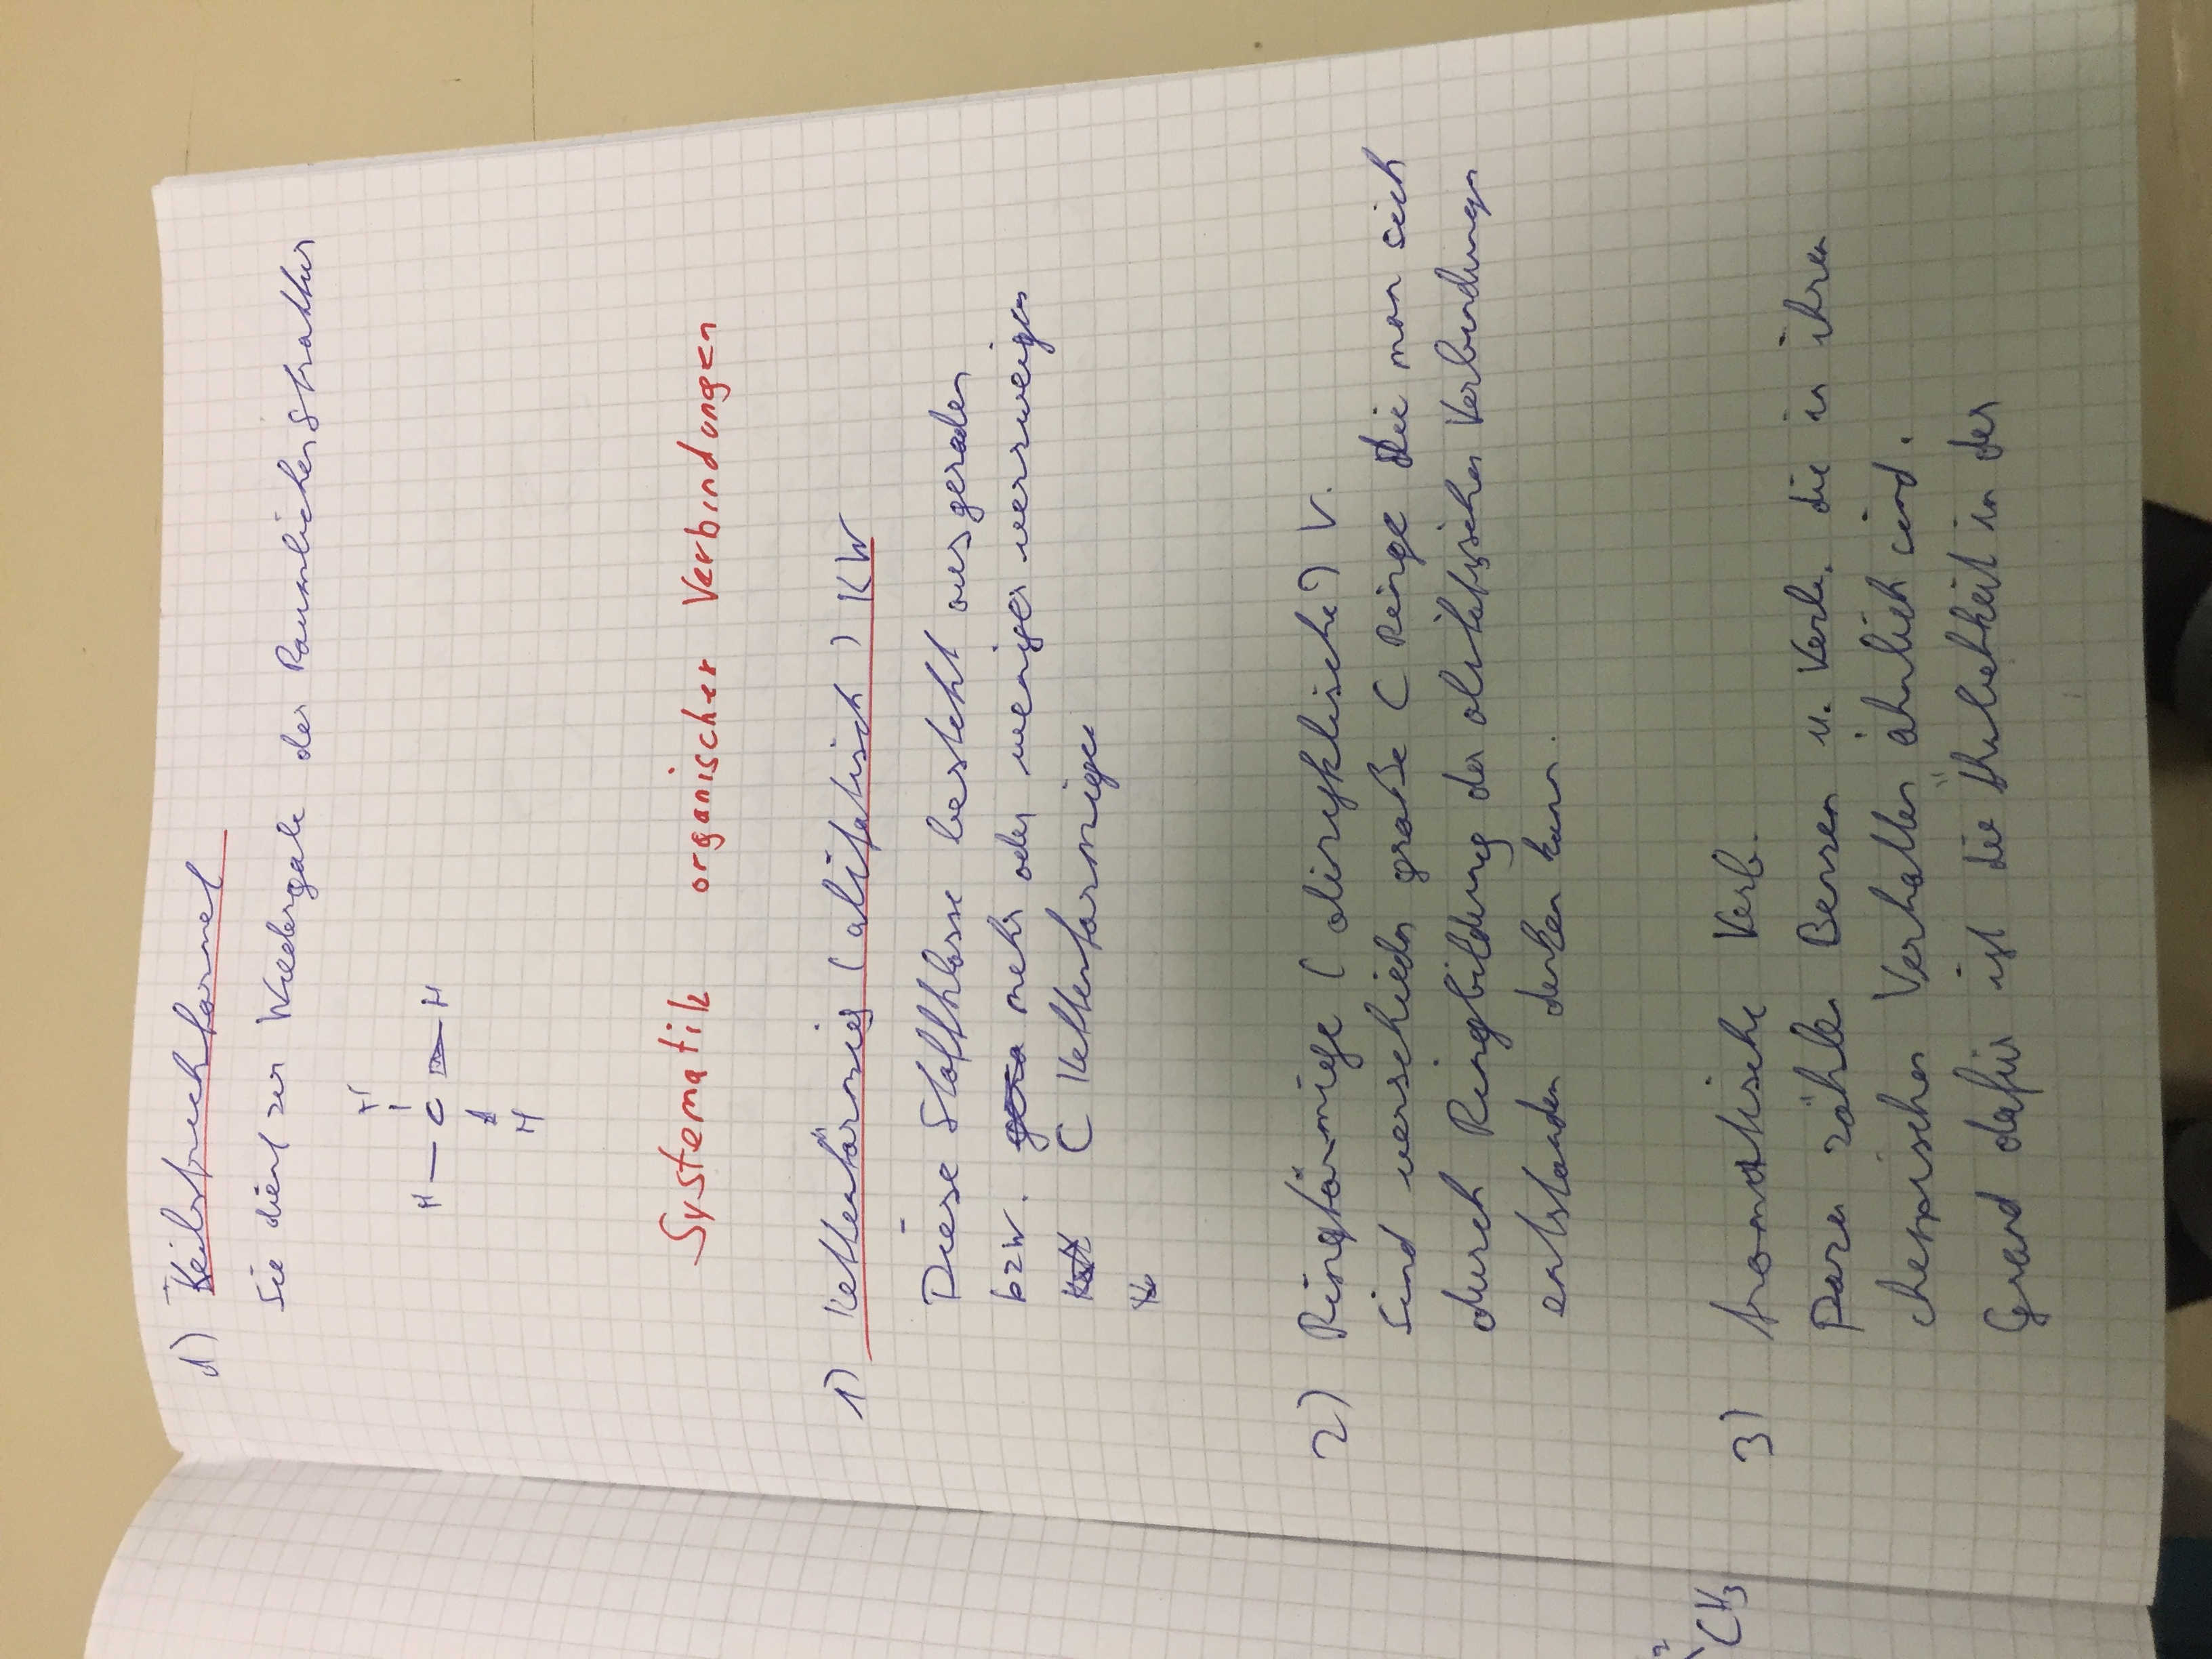 d) Keilstrichformel
Sie dient zur Wiedergabe der Räumlichen Struktur
H
H — C — H
H
Systematik organischer Verbindungen
1) Kettenförmig (alifatisch) KW
Diese Stoffklasse besteht aus geraden
bzw. mehr oder weniger verzweigen
C Kettenförmigen
2) Ringförmige (alizyklische) V.
Sind verschieden große C Ringe die man sich
durch Ringbildung der alifatischen Verbindungen
entstanden denken kann.
2
CH3
3) Aromatische Verb.
Dazu zählen Benzen u. Verb. die in ihren
chemischen Verhalten ähnlich sind.
Grund dafür ist die Ähnlichkeit in der